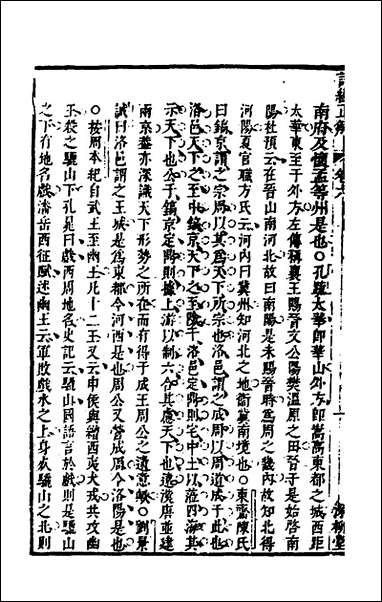 詩經正解 卷六
深柳堂
南府及懷孟等州是也○孔疏太華即華山外方即嵩高東都之城西距
太華東至于外方左傳稱襄王賜晉文公陽樊溫原之田晉于是始啓南
陽杜預云在晉山南河北故曰南陽是未賜晉時為周之畿內故知北得
河陽夏官職方氏云河內曰冀州知河北之地衛冀南境也○東齋陳氏
曰鎬京謂之宗周以其為天下所宗也洛邑謂之成周以周道成于此也
洛邑天下之至中鎬京天下之至險于洛邑定鼎則宅中土以蒞四海其
示天下也公于鎬京定鼎則據上游以制六合其慮天下也遠漢唐並建
南京葢亦深識天下形勢之所在而有得于成王周公之遺意歟○劉景
誠曰洛邑謂之王城是為東都今河西是也周公又營成周今洛陽是也
○按周本紀自武王至幽王凡十二王又云申侯與繒西夷犬戎共攻幽
王殺之驪山下孔晁曰戲西周地名史記云驪山國語言於戲則是驪山
之下有地名戲潘岳西征賦述幽王云軍敗戲水之上身死驪山之北則